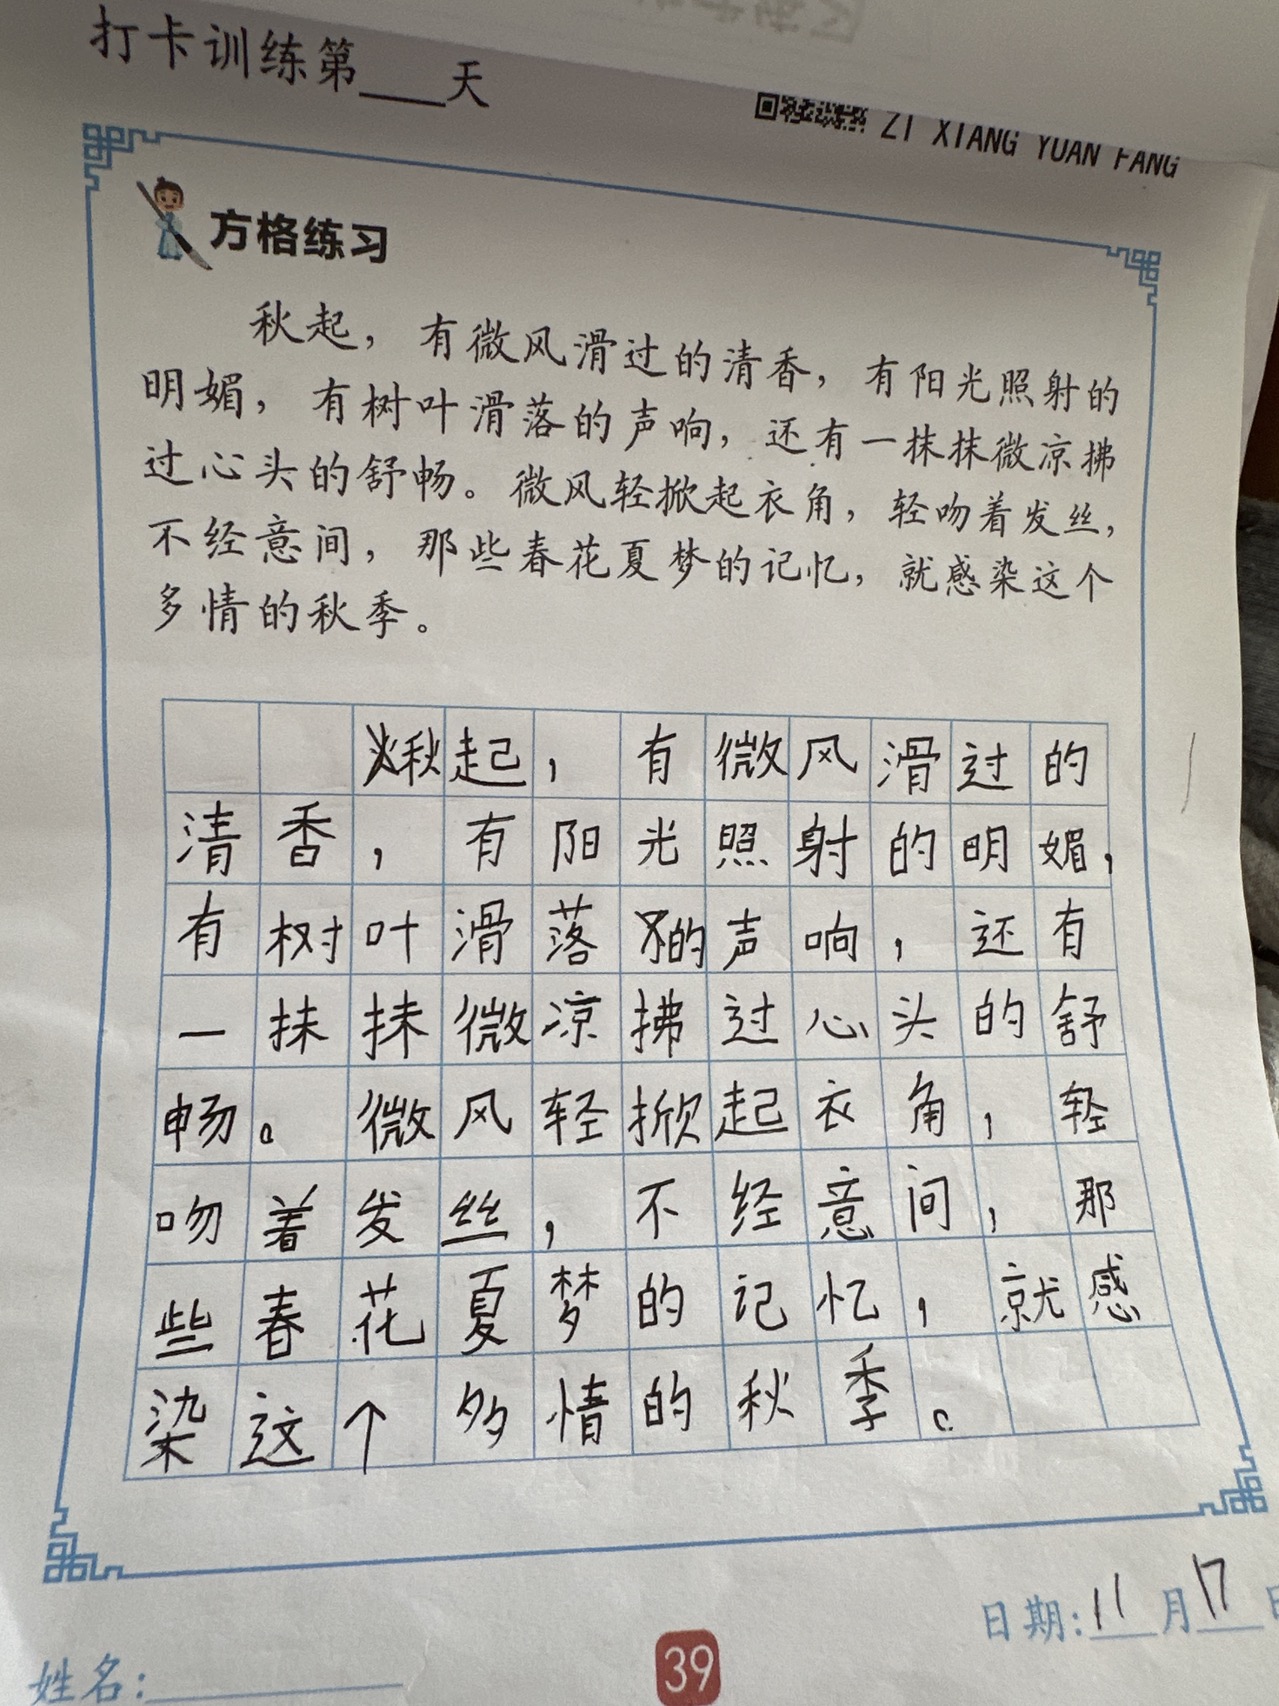 打卡训练第____天
ZI XIANG YUAN FANG
方格练习
秋起，有微风滑过的清香，有阳光照射的
明媚，有树叶滑落的声响，还有一抹抹微凉拂
过心头的舒畅。微风轻掀起衣角，轻吻着发丝，
不经意间，那些春花夏梦的记忆，就感染这个
多情的秋季。
秋起，有微风滑过的
清香，有阳光照射的明媚，
有树叶滑落的声响，还有
一抹抹微凉拂过心头的舒
畅。微风轻掀起衣角，轻
吻着发丝，不经意间，那
些春花夏梦的记忆，就感
染这个多情的秋季。
日期:11月17日
39
姓名: